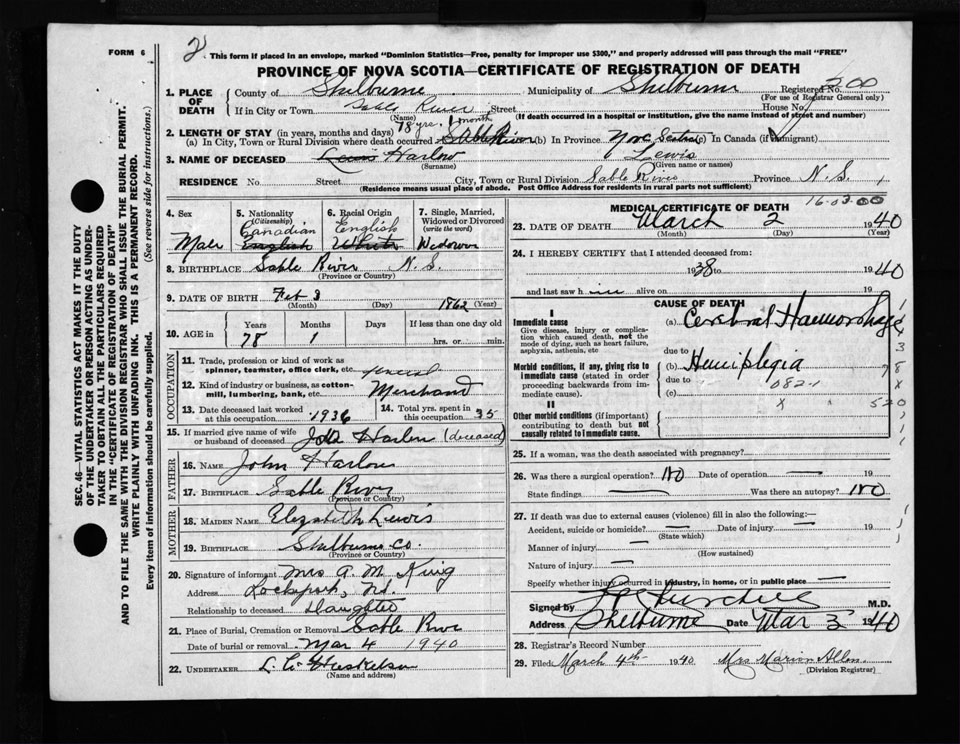 FORM 6
2
This form if placed in an envelope, marked "Dominion Statistics—Free, penalty for improper use $300," and properly addressed will pass through the mail "FREE"
PROVINCE OF NOVA SCOTIA—CERTIFICATE OF REGISTRATION OF DEATH
1. PLACE OF DEATH County of Shelburne Municipality of Shelburne Registered No. 500
(For use of Registrar General only)
If in City or Town Sable River Street House No.
(Name) (If death occurred in a hospital or institution, give the name instead of street and number)
78 yrs. 1 month
2. LENGTH OF STAY (in years, months and days)
(a) In City, Town or Rural Division where death occurred Sable River (b) In Province Nova Scotia (c) In Canada (if immigrant)
3. NAME OF DECEASED Lewis Harlow Lewis
(Surname) (Given name or names)
RESIDENCE No. Street City, Town or Rural Division Sable River Province N.S.
(Residence means usual place of abode. Post Office Address for residents in rural parts not sufficient)
4. Sex
Male
5. Nationality (Citizenship)
Canadian
English
6. Racial Origin
English
White
7. Single, Married, Widowed or Divorced (write the word)
Widower
8. BIRTHPLACE Sable River N.S.
(Province or Country)
9. DATE OF BIRTH Feb 3 1862
(Month) (Day) (Year)
10. AGE in Years Months Days If less than one day old
78 1 hrs. or min.
OCCUPATION
11. Trade, profession or kind of work as spinner, teamster, office clerk, etc. general
12. Kind of industry or business, as cotton-mill, lumbering, bank, etc. Merchant
13. Date deceased last worked at this occupation 1936
14. Total yrs. spent in this occupation 35
15. If married give name of wife or husband of deceased Ida Harlow (deceased)
FATHER
16. NAME John Harlow
17. BIRTHPLACE Sable River
(Province or Country)
MOTHER
18. MAIDEN NAME Elizabeth Lewis
19. BIRTHPLACE Shelburne Co.
(Province or Country)
20. Signature of informant Mrs A. M. King
Address Lockeport, N.S.
Relationship to deceased Daughter
21. Place of Burial, Cremation or Removal Sable River
Date of burial or removal Mar 4 1940
22. UNDERTAKER L. C.
(Name and address)
16-03-00
MEDICAL CERTIFICATE OF DEATH
23. DATE OF DEATH March 2 1940
(Month) (Day) (Year)
24. I HEREBY CERTIFY that I attended deceased from:
1938 to 1940
and last saw him alive on 19
CAUSE OF DEATH
I
Immediate cause (a) Cerebral Haemorrhage
Give disease, injury or complication which caused death, not the mode of dying, such as heart failure, asphyxia, asthenia, etc
due to
Morbid conditions, if any, giving rise to immediate cause (stated in order proceeding backwards from immediate cause). (b) Hemiplegia
due to 082-1
(c)
II
Other morbid conditions (if important) contributing to death but not causally related to immediate cause.
x 520
25. If a woman, was the death associated with pregnancy?
26. Was there a surgical operation? No Date of operation 19
State findings Was there an autopsy? No
27. If death was due to external causes (violence) fill in also the following:—
Accident, suicide or homicide? Date of injury 19
(State which)
Manner of injury
(How sustained)
Nature of injury
Specify whether injury occurred in industry, in home, or in public place
Signed by M.D.
Address Shelburne Date Mar 3 1940
28. Registrar's Record Number
29. Filed March 4th 1940 Mrs Marion Allen
(Division Registrar)
SEC. 46—VITAL STATISTICS ACT MAKES IT THE DUTY
OF THE UNDERTAKER OR PERSON ACTING AS UNDER-
TAKER TO OBTAIN ALL THE PARTICULARS REQUIRED
IN THE "CERTIFICATE OF REGISTRATION OF DEATH"
AND TO FILE THE SAME WITH THE DIVISION REGISTRAR WHO SHALL ISSUE THE BURIAL PERMIT.
WRITE PLAINLY WITH UNFADING INK. THIS IS A PERMANENT RECORD.
Every item of information should be carefully supplied. (See reverse side for instructions.)